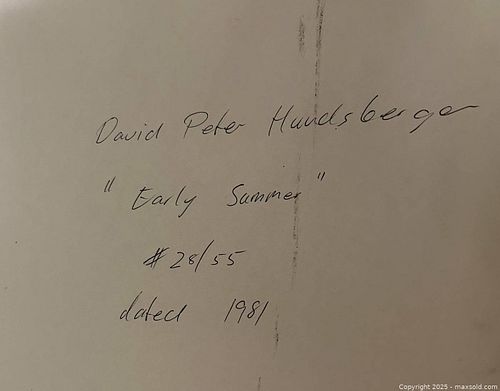 David Peter Hundsberger
"Early Summer"
#28/55
dated 1981
Copyright 2025 - maxsold.com